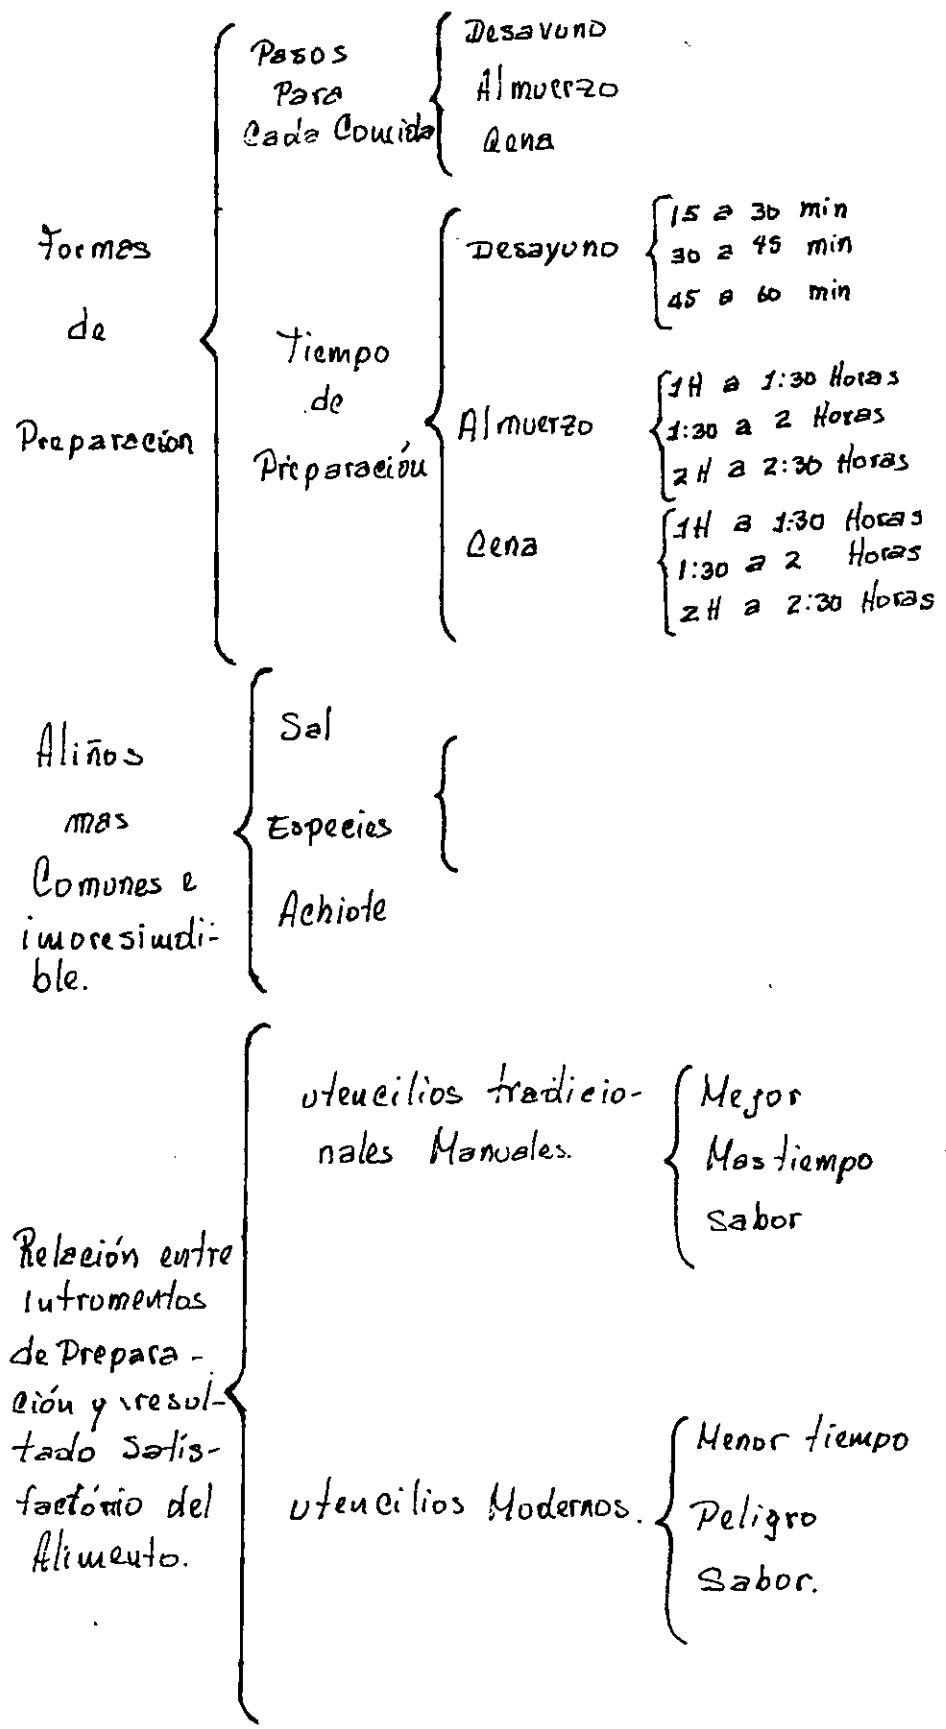 Formas
de
Preparación
Pasos
Para
Cada Comida
Desayuno
Almuerzo
Cena
Tiempo
de
Preparación
Desayuno
15 a 30 min
30 a 45 min
45 a 60 min
Almuerzo
1H a 1:30 Horas
1:30 a 2 Horas
2H a 2:30 Horas
Cena
1H a 1:30 Horas
1:30 a 2 Horas
2H a 2:30 Horas
Aliños
mas
Comunes e
imoresimdi-
ble.
Sal
Especies
Achiote
Relación entre
Intromentos
de Prepara-
ción y resul-
tado Satis-
factório del
Alimento.
utencilios tradicio-
nales Manuales.
Mejor
Mas tiempo
Sabor
utencilios Modernos.
Menor tiempo
Peligro
Sabor.